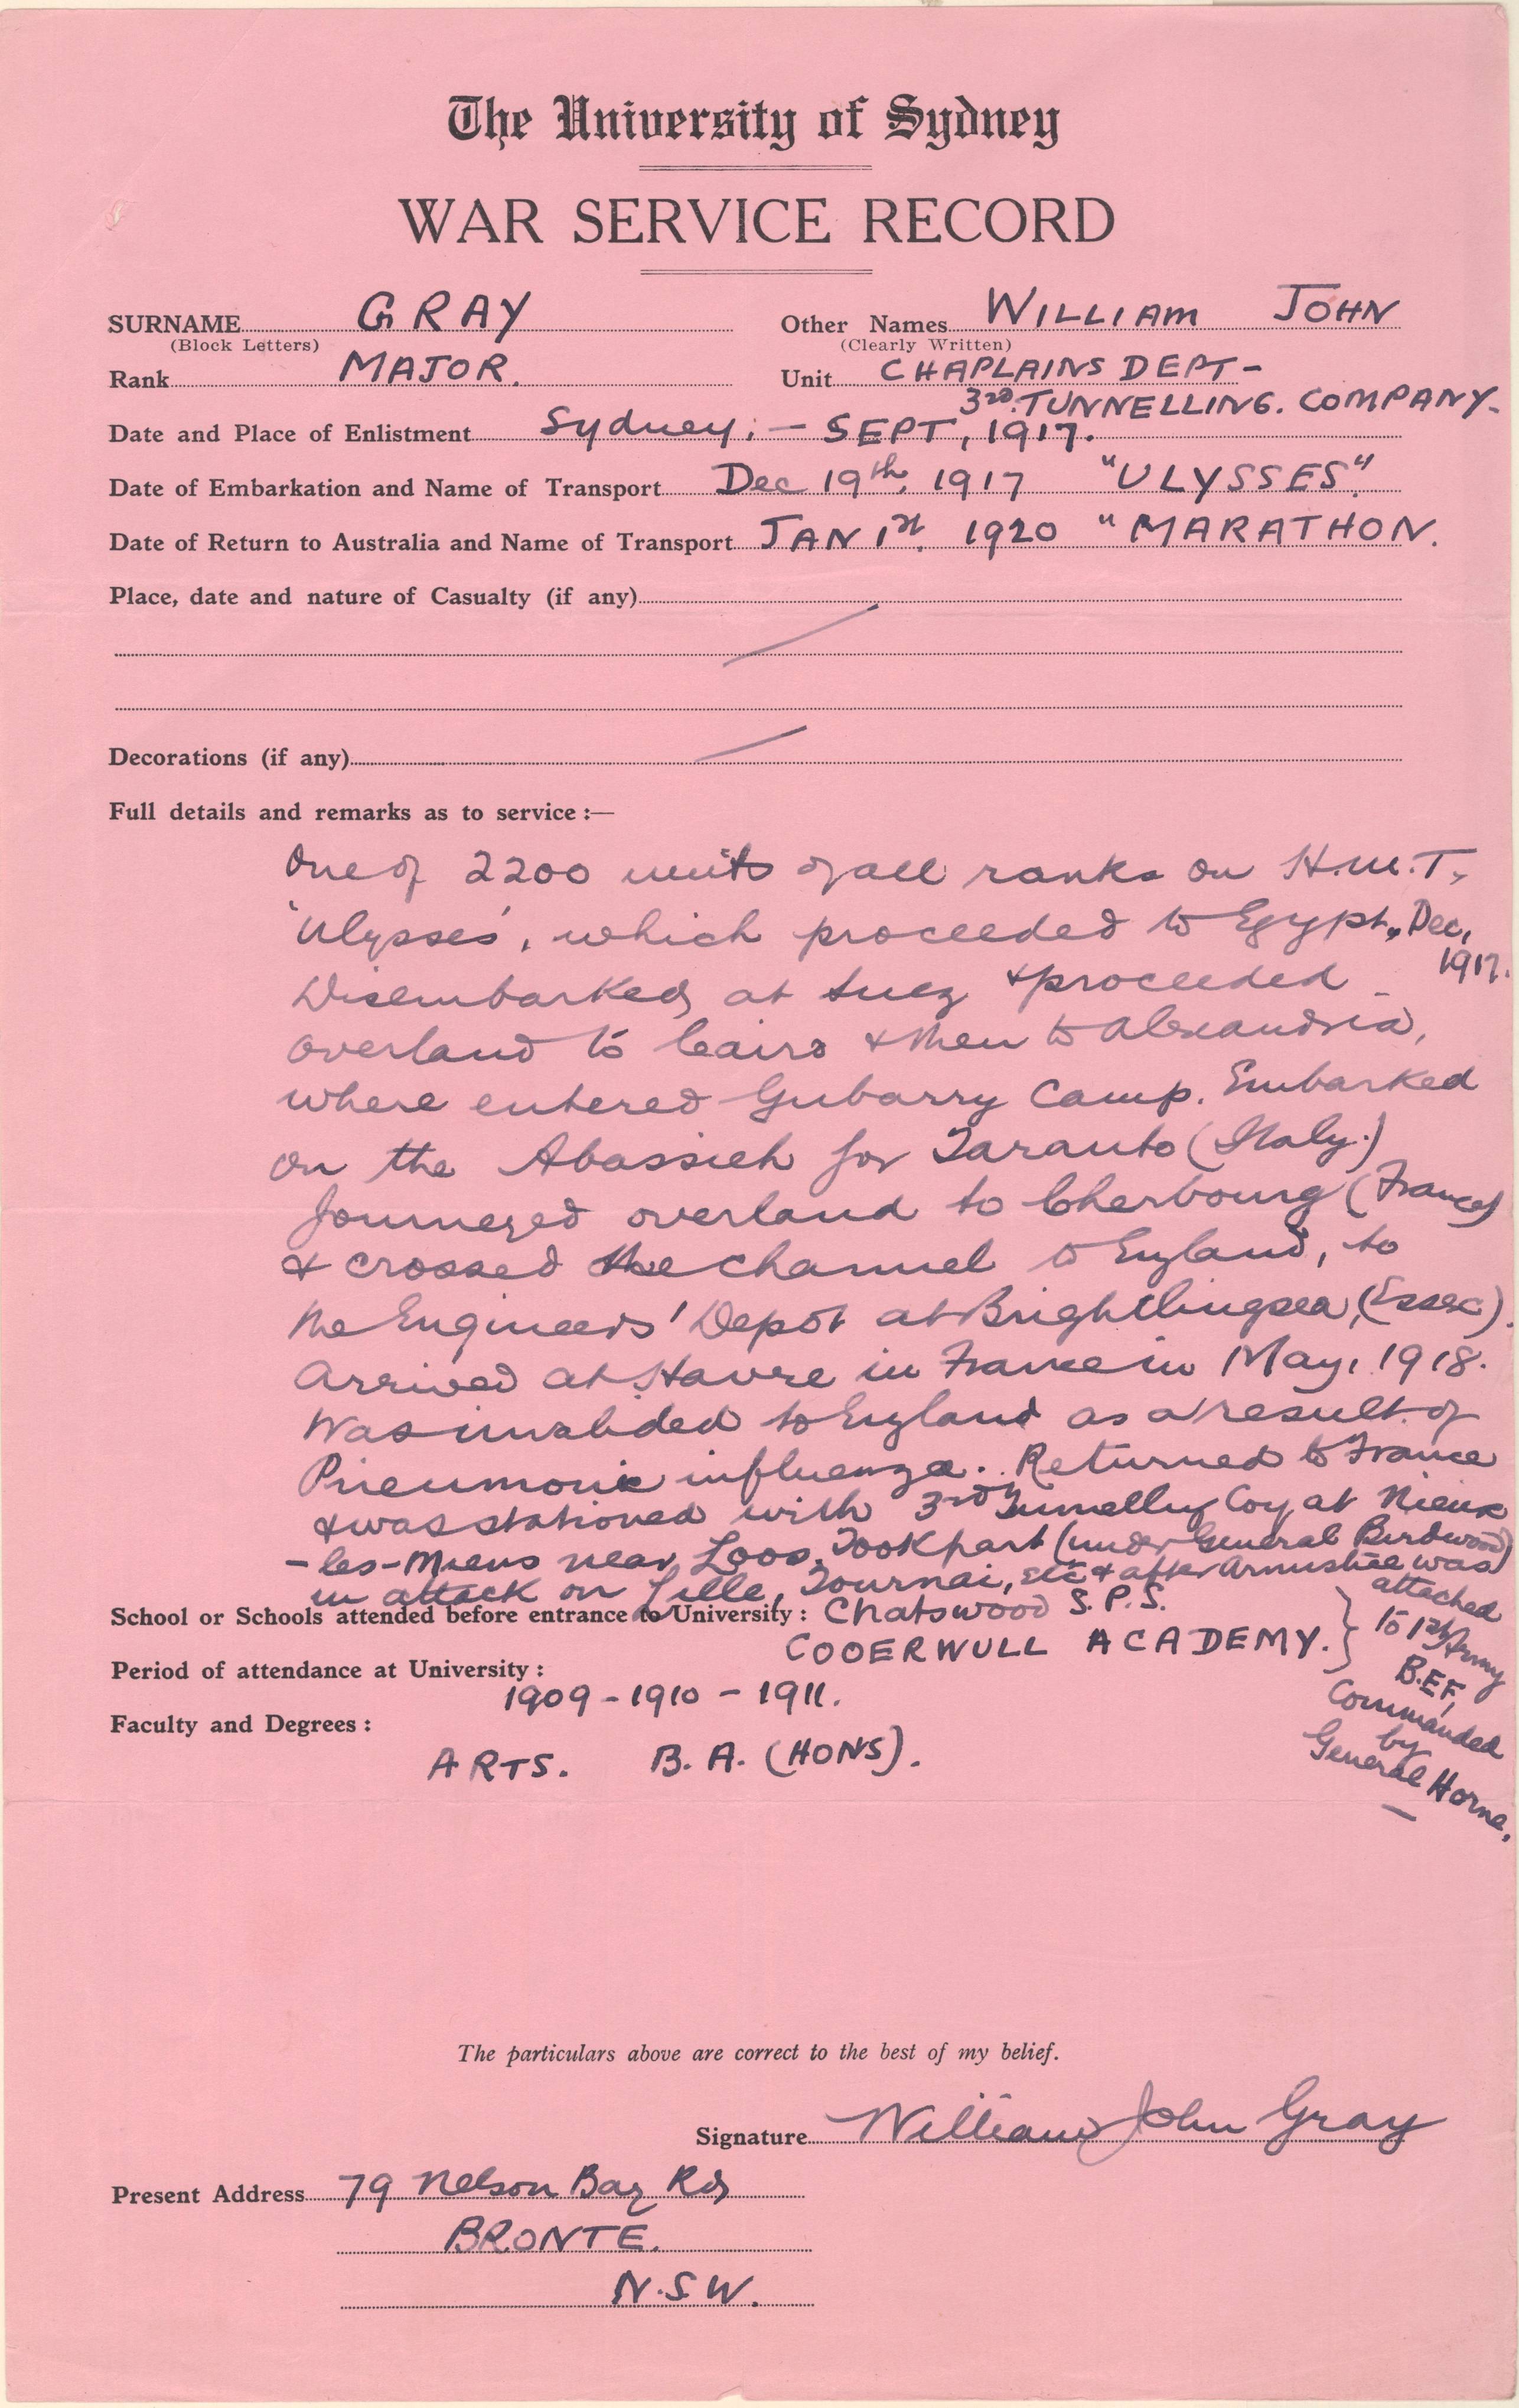 The University of Sydney
WAR SERVICE RECORD
SURNAME GRAY Other Names WILLIAM JOHN
(Block Letters) (Clearly Written)
Rank MAJOR. Unit CHAPLAINS DEPT-
3rd TUNNELLING. COMPANY.
Date and Place of Enlistment Sydney:- SEPT, 1917.
Date of Embarkation and Name of Transport Dec 19th, 1917 "ULYSSES"
Date of Return to Australia and Name of Transport JAN 1st. 1920 "MARATHON.
Place, date and nature of Casualty (if any)
Decorations (if any)
Full details and remarks as to service :—
One of 2200 units of all ranks on H.M.T.
'Ulysses', which proceeded to Egypt, Dec,
1917.
Disembarked at Suez & proceeded
overland to Cairo & then to Alexandria,
where entered Gubarry Camp. Embarked
on the Abassieh for Taranto (Italy.)
Journeyed overland to Cherbourg (France)
& crossed the channel to England, to
the Engineers' Depot at Brightlingsea, (Essex).
Arrived at Havre in France in May, 1918.
Was invalided to England as a result of
Pneumonic influenza. Returned to France
& was stationed with 3rd Tunnelling Coy at Nieux
-les-Miens near Loos. Took part (under General Birdwood)
in attack on Lille, Tournai, etc & after Armistice was
attached
to 1st Army
B.E.F,
Commanded
by
General Horne,
School or Schools attended before entrance to University : Chatswood S.P.S.
COOERWULL ACADEMY.
Period of attendance at University :
1909-1910-1911.
Faculty and Degrees :
ARTS. B.A. (HONS).
The particulars above are correct to the best of my belief.
Signature William John Gray
Present Address 79 Nelson Bay Rd
BRONTE.
N.S.W.